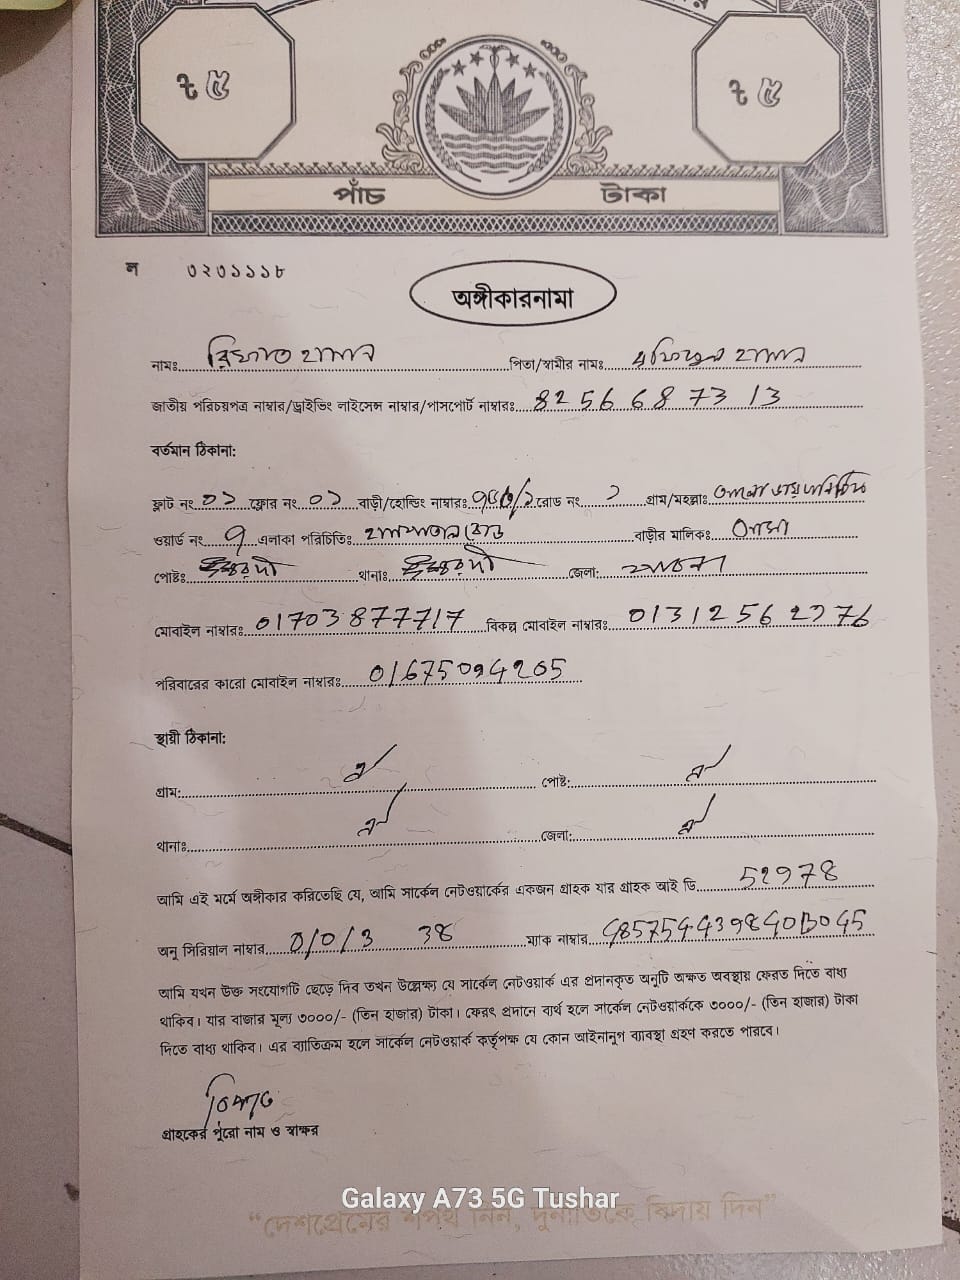 ৳ ৫ ৳ ৫
পাঁচ টাকা
ল ৩২৩১১১৮
অঙ্গীকারনামা
নামঃ রিফাত হাসান পিতা/স্বামীর নামঃ হাসান
জাতীয় পরিচয়পত্র নাম্বার/ড্রাইভিং লাইসেন্স নাম্বার/পাসপোর্ট নাম্বারঃ 8256687313
বর্তমান ঠিকানা:
ফ্লাট নং ০১ ফ্লোর নং ০১ বাড়ী/হোল্ডিং নাম্বারঃ রোড নং ১ গ্রাম/মহল্লাঃ
ওয়ার্ড নং ৭ এলাকা পরিচিতিঃ হাসপাতাল রোড বাড়ীর মালিকঃ
পোষ্টঃ ঈশ্বরদী থানাঃ ঈশ্বরদী জেলা: পাবনা
মোবাইল নাম্বারঃ 01703877717 বিকল্প মোবাইল নাম্বারঃ
পরিবারের কারো মোবাইল নাম্বারঃ
স্থায়ী ঠিকানা:
গ্রাম: ঐ পোষ্ট: ঐ
থানাঃ ঐ জেলা: ঐ
আমি এই মর্মে অঙ্গীকার করিতেছি যে, আমি সার্কেল নেটওয়ার্কের একজন গ্রাহক যার গ্রাহক আই ডি
অনু সিরিয়াল নাম্বার 0/0/3 38 ম্যাক নাম্বার
আমি যখন উক্ত সংযোগটি ছেড়ে দিব তখন উল্লেখ্য যে সার্কেল নেটওয়ার্ক এর প্রদানকৃত অনুটি অক্ষত অবস্থায় ফেরত দিতে বাধ্য
থাকিব। যার বাজার মূল্য ৩০০০/- (তিন হাজার) টাকা। ফেরৎ প্রদানে ব্যর্থ হলে সার্কেল নেটওয়ার্ককে ৩০০০/- (তিন হাজার) টাকা
দিতে বাধ্য থাকিব। এর ব্যতিক্রম হলে সার্কেল নেটওয়ার্ক কর্তৃপক্ষ যে কোন আইনানুগ ব্যবস্থা গ্রহণ করতে পারবে।
রিফাত
গ্রাহকের পুরো নাম ও স্বাক্ষর
Galaxy A73 5G Tushar
“দেশপ্রেমের শপথ নিন, দুর্নীতিকে বিদায় দিন”